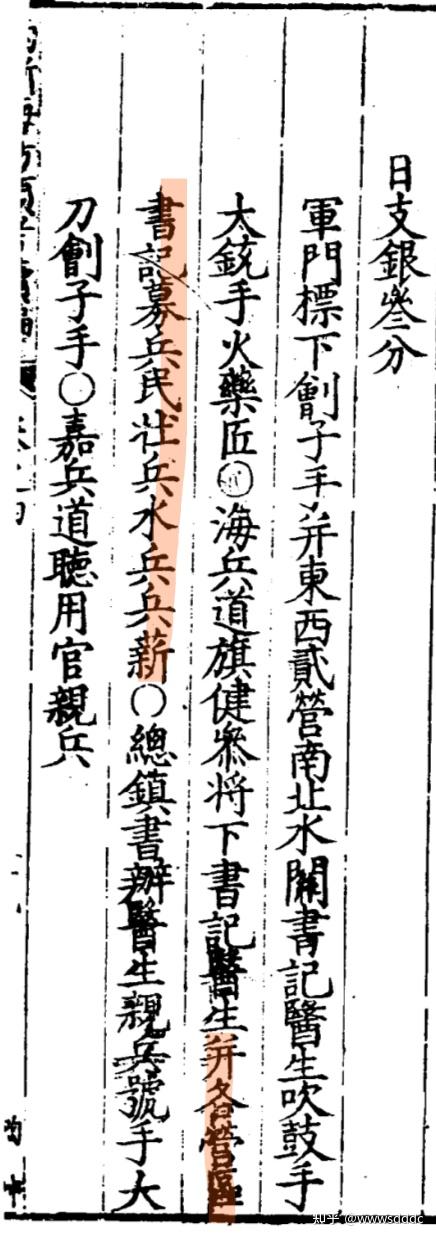 日支銀叄分
軍門標下劊子手并東西貳營南北水關書記醫生吹鼓手
大銃手火藥匠○海兵道旗健叅將下書記醫生并各營
書記募兵民壯兵水兵兵薪○總鎮書辦醫生親兵號手大
刀劊子手○嘉兵道聽用官親兵
知乎 @wwwsdddc